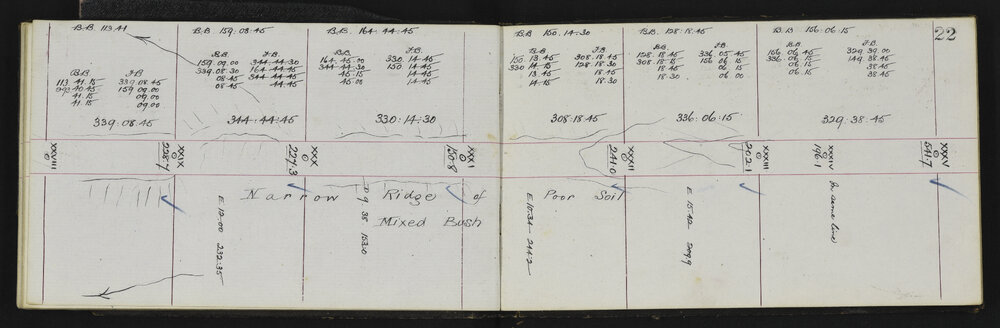 22
B.B. 113.44
B.B. 159:08:45
B.B. 164:44:45
B.B. 150:14:30
B.B. 128:18:45
B.B. 156:06:15
B.B. F.B.
113 41.15 339 08.45
293 40.45 159 09.00
41.15 09.00
41.15 09.00
339:08:45
B.B. F.B.
159 09.00 344 44.30
339 08.30 164 44.45
08 45 344 44.45
08 45 44.45
344:44:45
B.B. F.B.
164 45.00 330 14.30
344 44.30 150 14.45
45.15 14.45
45.00 14.45
330:14:30
B.B. F.B.
150 13.45 308 18.45
330 14.15 128 18.30
13.45 18.45
14.15 18.30
308:18:45
B.B. F.B.
128 18 45 336 05.45
308 18 15 156 06 15
18.45 06 15
18.30 06 00
336:06:15
B.B. F.B.
156 06 45 329 39.00
336 06.15 149 38.45
06 15 38.45
06.15 38.45
329:38:45
XXVIII
XXIX
228.4
XXX
227.3
XXXI
150.8
XXXII
241.0
XXXIII
242.1
XXXIV
196.1
XXXV
541.7
Narrow Ridge of Poor Soil
Mixed Bush
E 12.00 232.35
D 9 38 153.0
E 10.34 244.2
E 15.42
In same line